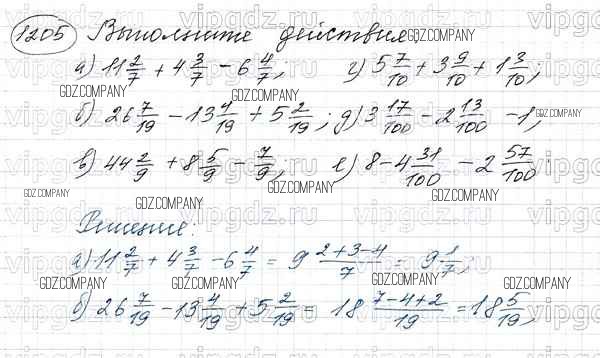 1205 Выполните действия:
а) 11 2/7 + 4 3/7 − 6 4/7; г) 5 7/10 + 3 9/10 + 1 3/10;
б) 26 7/19 − 13 4/19 + 5 2/19; д) 3 17/100 − 2 13/100 − 1;
в) 44 2/9 + 8 5/9 − 7/9; е) 8 − 4 31/100 − 2 57/100.
Решение:
а) 11 2/7 + 4 3/7 − 6 4/7 = 9 (2+3−4)/7 = 9 1/7;
б) 26 7/19 − 13 4/19 + 5 2/19 = 18 (7−4+2)/19 = 18 5/19;
GDZ.COMPANY
vipgdz.ru